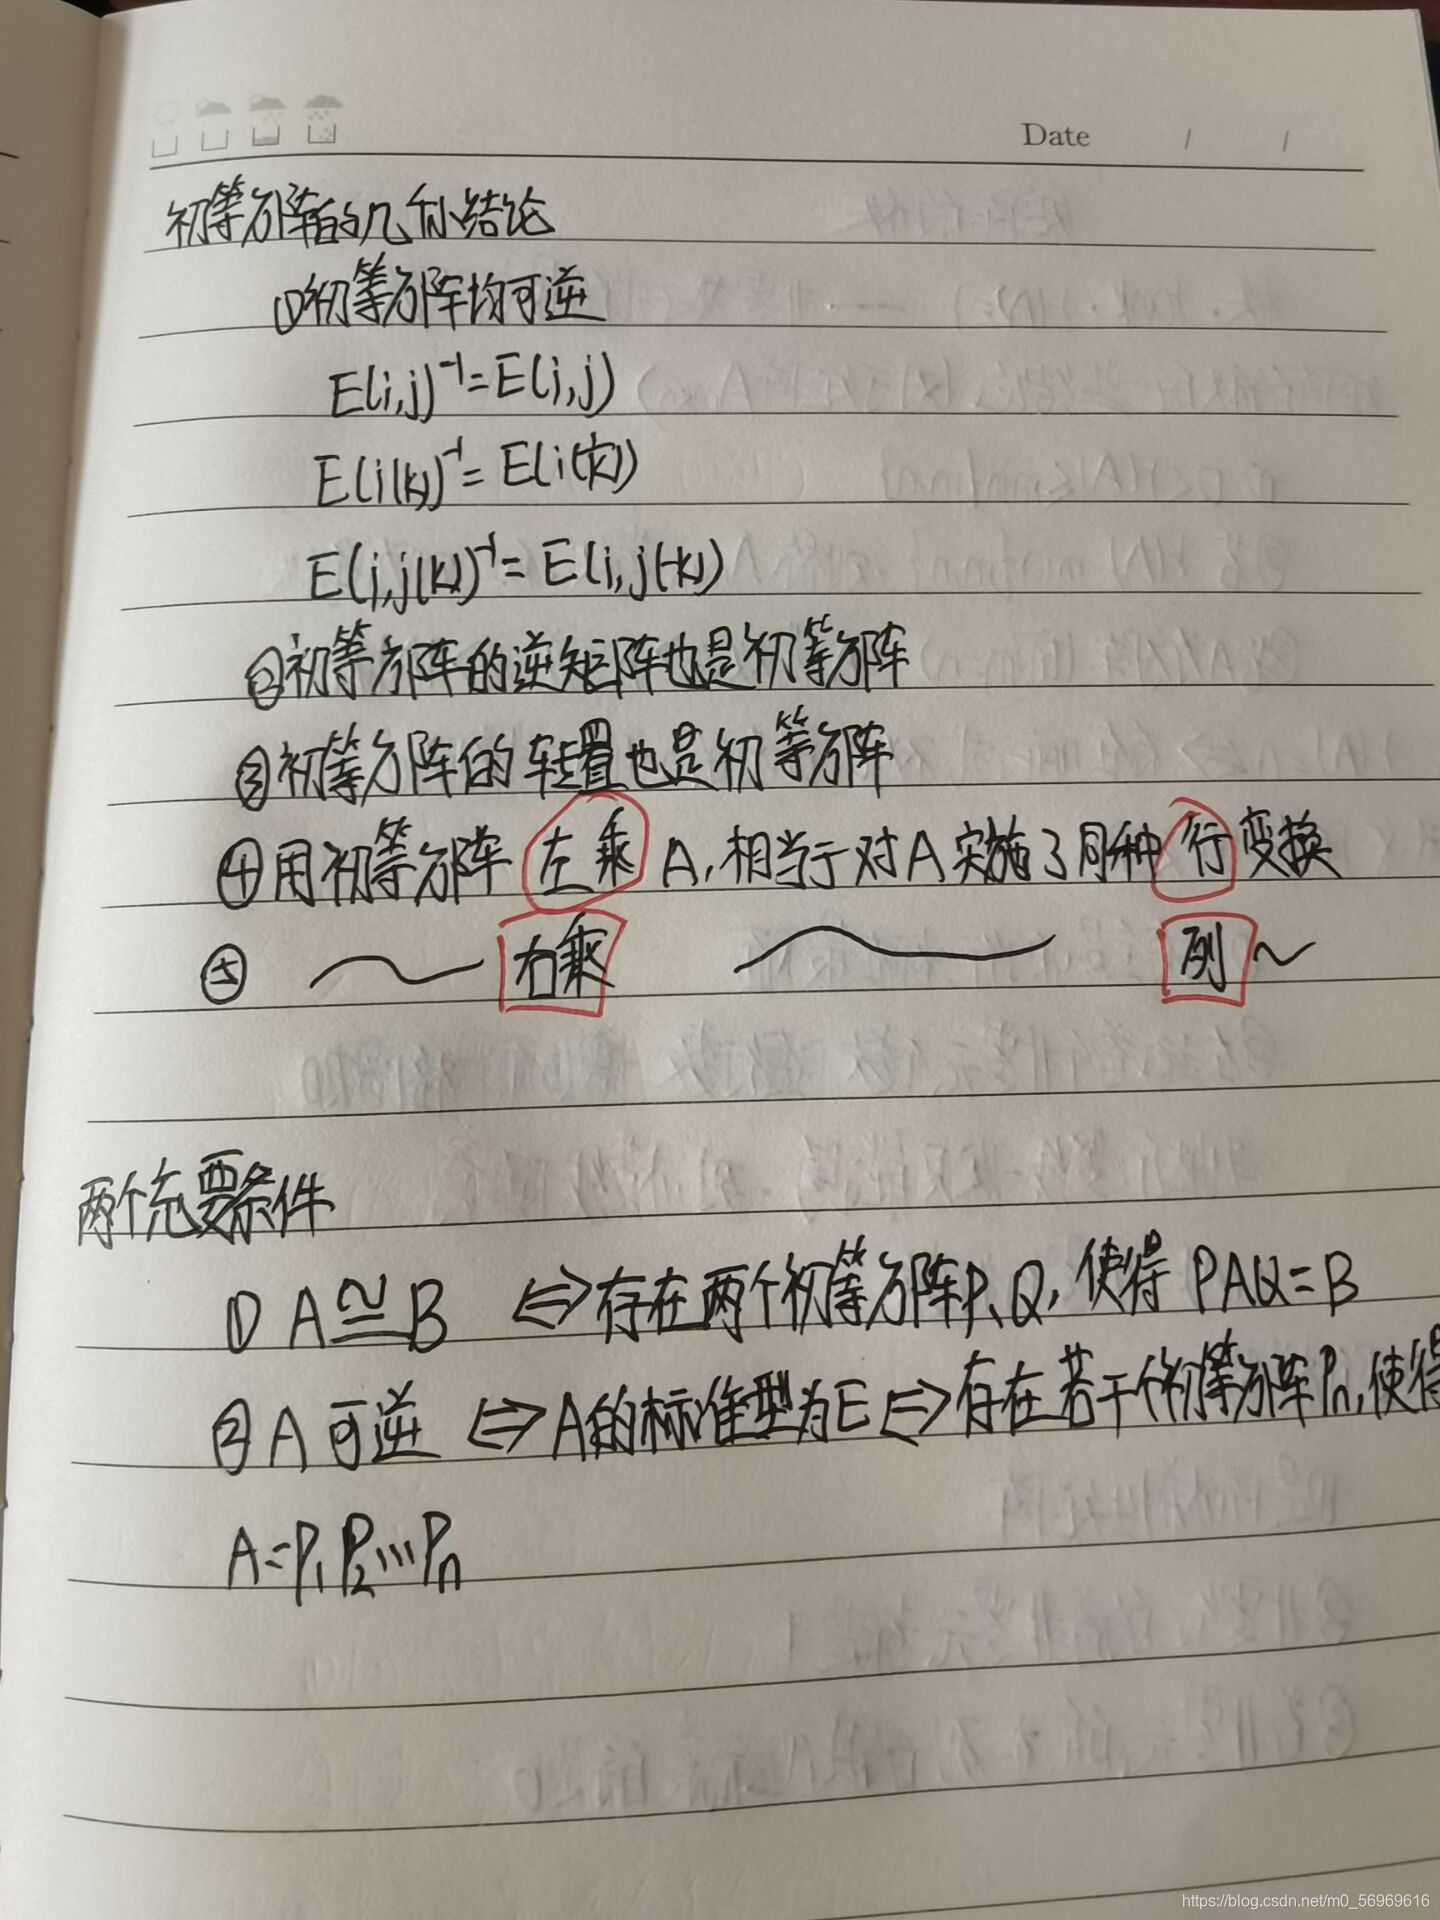 Date / /
初等方阵的几个小结论
①初等方阵均可逆
E(i,j)⁻¹=E(i,j)
E(i(k))⁻¹=E(i(1/k))
E(i,j(k))⁻¹=E(i,j(-k))
②初等方阵的逆矩阵也是初等方阵
③初等方阵的转置也是初等方阵
④用初等方阵左乘A,相当于对A实施了同种行变换
⑤ ～ 右乘 ～ 列～
两个充要条件
① A≅B ⇔存在两个初等方阵P、Q,使得 PAQ=B
②A可逆 ⇔A的标准型为E⇔存在若干个初等方阵Pn,使得
A=P₁P₂…Pn
https://blog.csdn.net/m0_56969616